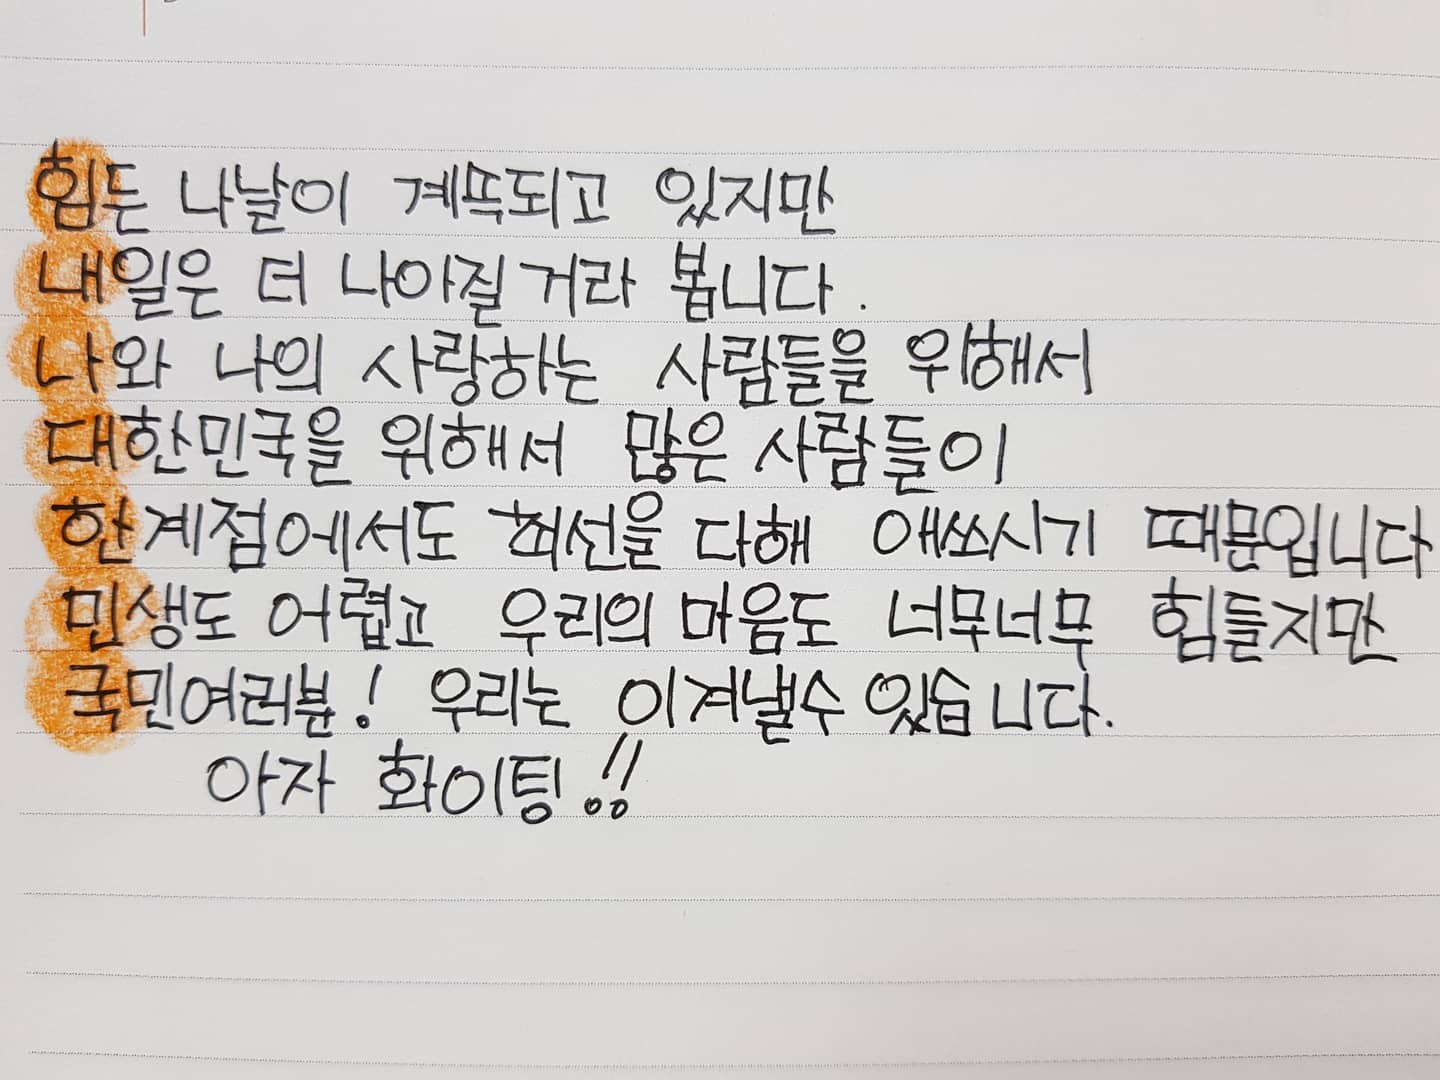 힘든 나날이 계속되고 있지만
내일은 더 나아질 거라 봅니다.
나와 나의 사랑하는 사람들을 위해서
대한민국을 위해서 많은 사람들이
한계점에서도 최선을 다해 애쓰시기 때문입니다
민생도 어렵고 우리의 마음도 너무너무 힘들지만
국민여러분! 우리는 이겨낼수 있습니다.
아자 화이팅!!